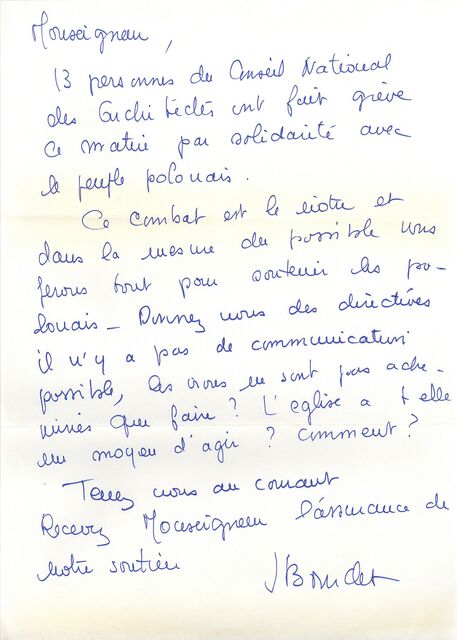 Monseigneur,
13 personnes du Conseil National
des Architectes ont fait grève
ce matin par solidarité avec
le peuple polonais.
Ce combat est le notre et
dans la mesure du possible nous
ferons tout pour soutenir les po-
lonais - Donnez nous des directives
il n'y a pas de communication
possible, les vivres ne sont pas ache-
minés que faire ? L'eglise a t elle
un moyen d'agir ? Comment ?
Tenez nous au courant
Recevez Monseigneur l'assurance de
notre soutien